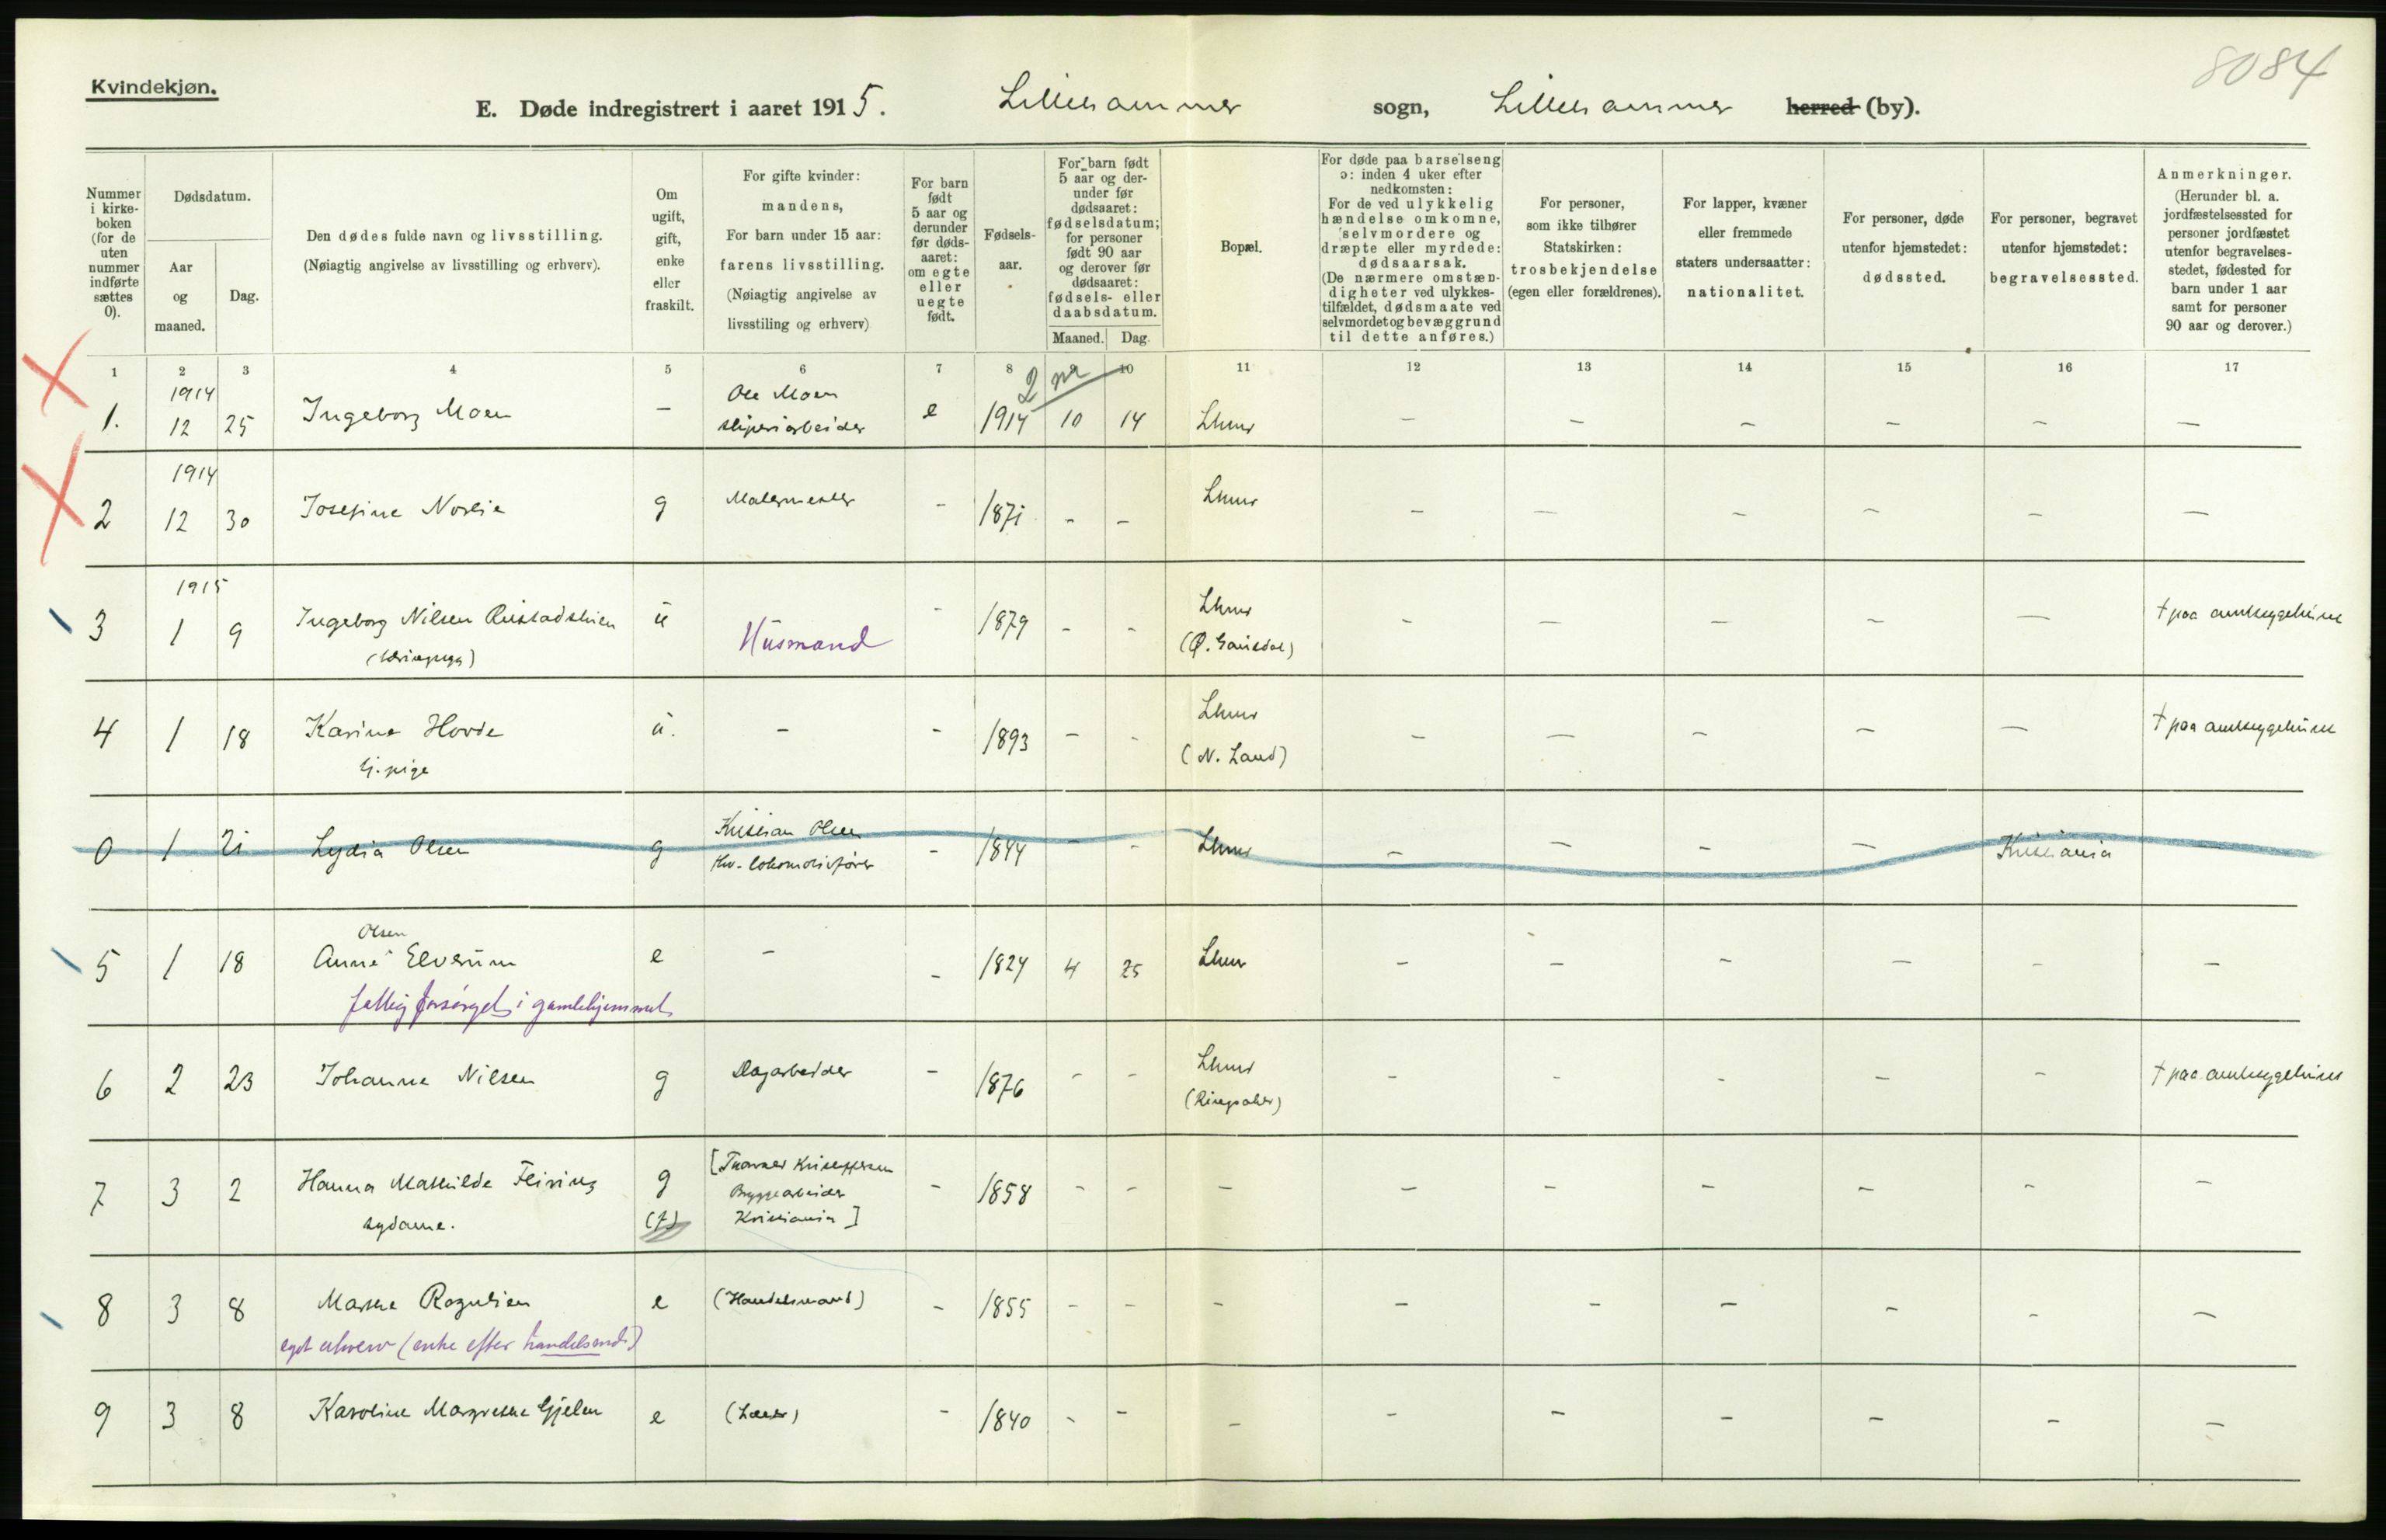 8084
Kvindekjøn.
E. Døde indregistrert i aaret 1915. Lillehammer sogn, Lillehammer herred (by).
Nummer i kirke-boken (for de uten nummer indførte sættes 0).
Dødsdatum.
Aar og maaned.
Dag.
Den dødes fulde navn og livsstilling.
(Nøiagtig angivelse av livsstilling og erhverv).
Om ugift, gift, enke eller fraskilt.
For gifte kvinder:
mandens,
For barn under 15 aar:
farens livsstilling.
(Nøiagtig angivelse av
livsstiling og erhverv)
For barn født 5 aar og derunder før døds-aaret: om egte eller uegte født.
Fødsels-aar.
For barn født 5 aar og der-under før dødsaaret: fødselsdatum; for personer født 90 aar og derover før dødsaaret: fødsels- eller daabsdatum.
Maaned. Dag.
Bopæl.
For døde paa barselseng
ɔ: inden 4 uker efter
nedkomsten:
For de ved ulykkelig
hændelse omkomne,
selvmordere og
dræpte eller myrdede:
dødsaarsak.
(De nærmere omstæn-
digheter ved ulykkes-
tilfældet, dødsmaate ved
selvmordet og bevæggrund
til dette anføres.)
For personer,
som ikke tilhører
Statskirken:
trosbekjendelse
(egen eller forældrenes).
For lapper, kvæner
eller fremmede
staters undersaatter:
nationalitet.
For personer, døde
utenfor hjemstedet:
dødssted.
For personer, begravet
utenfor hjemstedet:
begravelsessted.
Anmerkninger.
(Herunder bl. a.
jordfæstelsessted for
personer jordfæstet
utenfor begravelses-
stedet, fødested for
barn under 1 aar
samt for personer
90 aar og derover.)
1 2 3 4 5 6 7 8 9 10 11 12 13 14 15 16 17
2 m
1914 Ole Moen
1. 12 25 Ingeborg Moen – sliperiarbeider e 1914 10 14 Lhmr – – – – – –
1914
2 12 30 Josefine Norlie g Malermester – 1871 – – Lhmr – – – – – –
1915
3 1 9 Ingeborg Nilsen Rustadstuen u Husmand – 1879 – – Lhmr – – – – – † paa amtssygehuset
(Ø. Gausdal)
4 1 18 Karine Hovde u. – – 1893 – – Lhmr – – – – – † paa amtssygehuset
tj. pige (N. Land)
0 1 21 Lydia Olsen g Kristian Olsen – 1844 – – Lhmr – – – – Kristiania
fhv. lokomotivfører
Olsen
5 1 18 Anne Elverum e – – 1824 4 25 Lhmr – – – – – –
fattig forsørget i gamlehjemmet
6 2 23 Johanne Nilsen g Dagarbeider – 1876 – – Lhmr – – – – – † paa amtssygehuset
(Ringsaker)
7 3 2 Hanna Mathilde Feiring g [Thorvald Kristoffersen – 1858 – – – – – – – – –
sydame. (f) Byggearbeider
Kristiania]
8 3 8 Marthe Rognlien e (Handelsmand) – 1855 – – – – – – – – –
eget erhverv (enke efter handelsmd.)
9 3 8 Karoline Margrethe Gjelen e – 1840 – – – – – – – – –